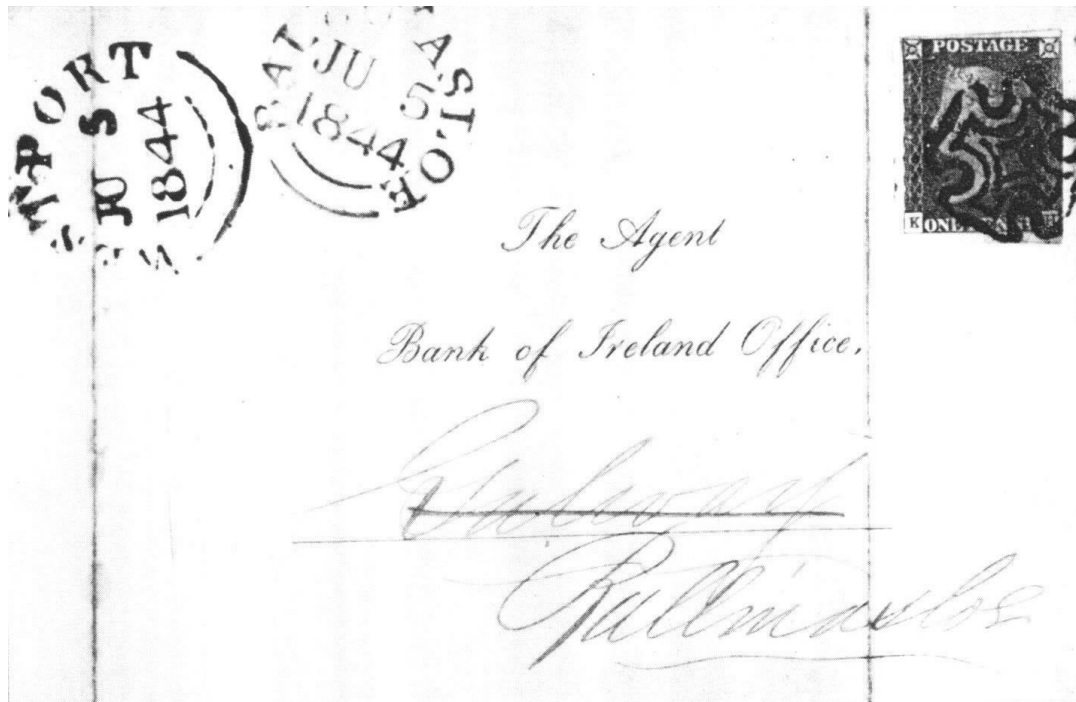 WESTPORT
JU 5
1844
BAL ASLOE
JU 5
1844
POSTAGE
K ONE
The Agent
Bank of Ireland Office,
Galway
Ballinasloe